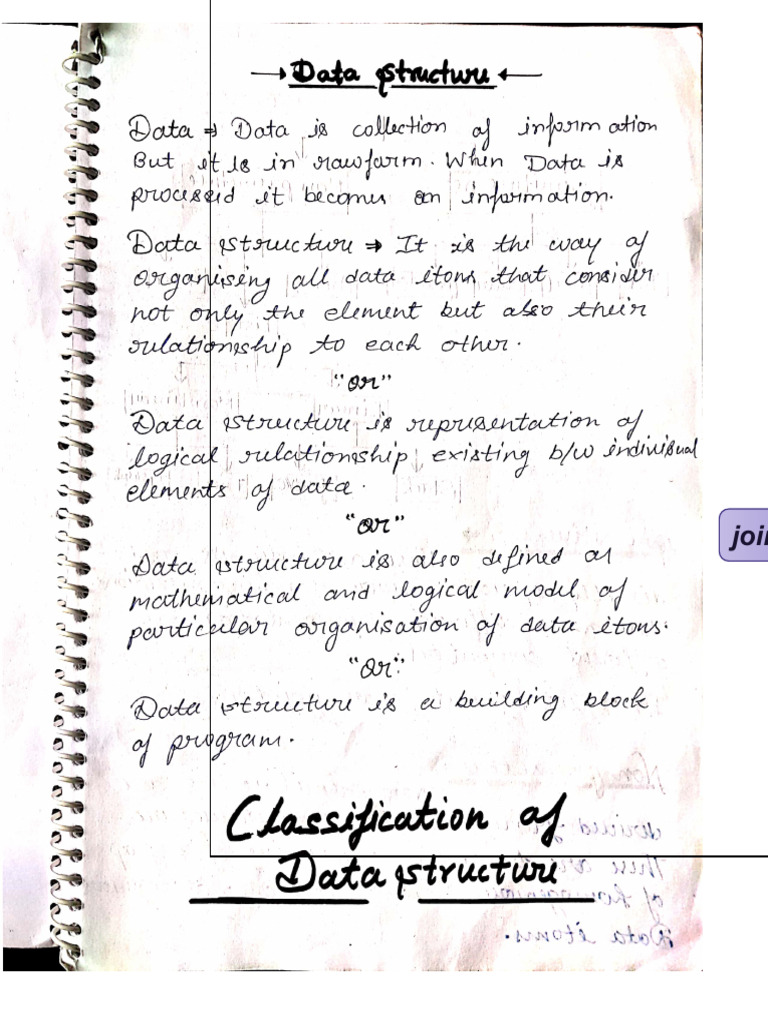 Data structure
Data → Data is collection of information
But it is in rawform. When Data is
processed it becomes an information.
Data structure → It is the way of
organising all data itoms that consider
not only the element but also their
relationship to each other.
"or"
Data structure is representation of
logical relationship existing b/w indiviual
elements of data.
"or"
Data structure is also defined as
mathematical and logical model of
particular organisation of data itoms.
"or"
Data structure is a building block
of program.
Classification of
Data structure
join